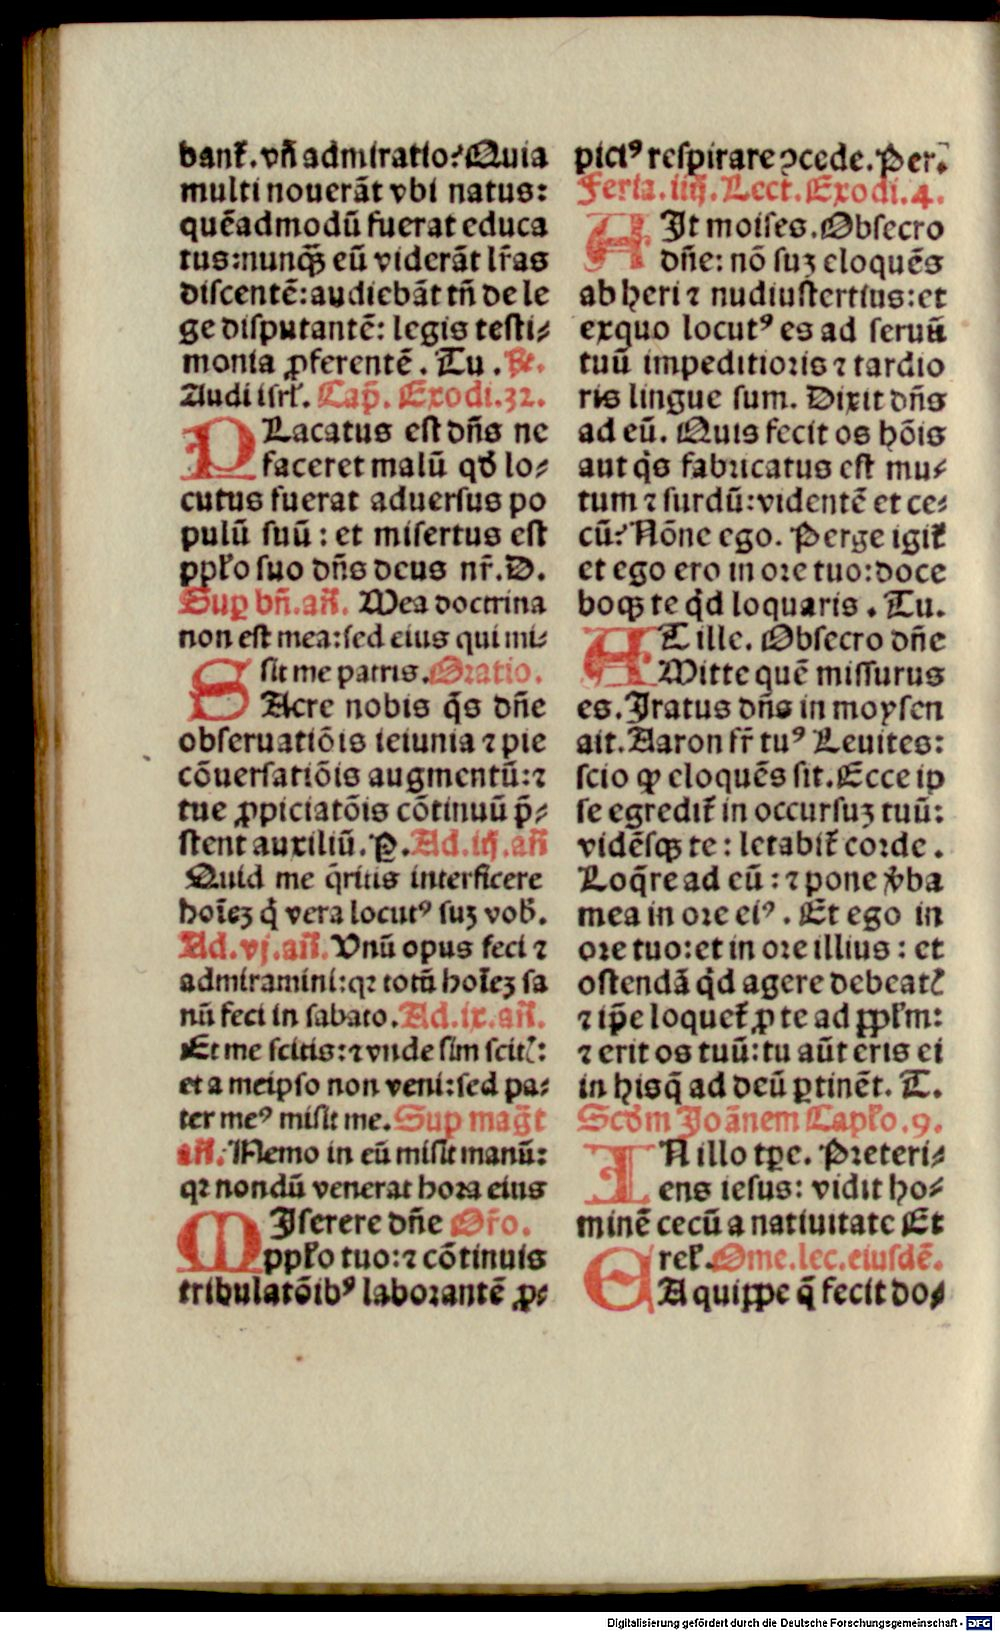 bant̃. vñ admiratio? Quia
multi nouerãt vbi natus:
quẽadmodũ fuerat educa
tus: nunqꝫ eũ viderãt lr̃as
discentẽ: audiebãt tñ de le
ge disputantẽ: legis testi⸗
monia ꝓferentẽ. Tu. ℟.
Audi isrl̃. Cap̃. Exodi.32.
PLacatus est dñs ne
faceret malũ qđ lo⸗
cutus fuerat aduersus po
pulũ suũ: et misertus est
ppl̃o suo dñs deus nr̃. D.
Sup bñ. añ. Mea doctrina
non est mea: sed eius qui mi⸗
sit me patris. Oratio.
SAcre nobis q̃s dñe
obseruatiõis ieiunia ⁊ pie
cõuersatiõis augmentũ: ⁊
tue ꝓpiciatõis cõtinuũ p̃⸗
stent auxiliũ. P. Ad.iij.añ
Quid me q̃ritis interficere
hoĩeꝫ q̃ vera locutꝰ suꝫ vob̃.
Ad.vj.añ. Vnũ opus feci ⁊
admiramini: qꝛ totũ hoĩeꝫ sa
nũ feci in sabato. Ad.ix.añ.
Et me scitis: ⁊ vnde sim scitꝭ:
et a meipso non veni: sed pa⸗
ter meꝰ misit me. Sup mag̃t
añ. Nemo in eũ misit manũ:
qꝛ nondũ venerat hora eius
MIserere dñe Or̃o.
ppl̃o tuo: ⁊ cõtinuis
tribulatõibꝰ laborantẽ ꝓ⸗
piciꝰ respirare ꝯcede. Per.
Feria.iiij. Lect. Exodi.4.
AIt moises. Obsecro
dñe: nõ suꝫ eloquẽs
ab heri ⁊ nudiustertius: et
exquo locutꝰ es ad seruũ
tuũ impeditioris ⁊ tardio
ris lingue sum. Dixit dñs
ad eũ. Quis fecit os hõis
aut q̃s fabricatus est mu⸗
tum ⁊ surdũ: videntẽ et ce⸗
cũ? Nõne ego. Perge igit̃
et ego ero in ore tuo: doce
boqꝫ te q̃d loquaris. Tu.
AT ille. Obsecro dñe
Mitte quẽ missurus
es. Iratus dñs in moysen
ait. Aaron fr̃ tuꝰ Leuites:
scio ꝙ eloquẽs sit. Ecce ip
se egredit̃ in occursuꝫ tuũ:
vidẽsqꝫ te: letabit̃ corde.
Loq̃re ad eũ: ⁊ pone v̾ba
mea in ore eiꝰ. Et ego in
ore tuo: et in ore illius: et
ostendã q̃d agere debeatꝭ
⁊ ip̃e loquet̃ ꝓ te ad ppl̃m:
⁊ erit os tuũ: tu aũt eris ei
in hisq̃ ad deũ ꝑtinẽt. T.
Scđm Joãnem Capl̃o.9.
IN illo tꝑe. Preteri⸗
ens iesus: vidit ho⸗
minẽ cecũ a natiuitate Et
rel̃. Ome.lec.eiusdẽ.
EA quippe q̃ fecit do⸗
Digitalisierung gefördert durch die Deutsche Forschungsgemeinschaft - DFG